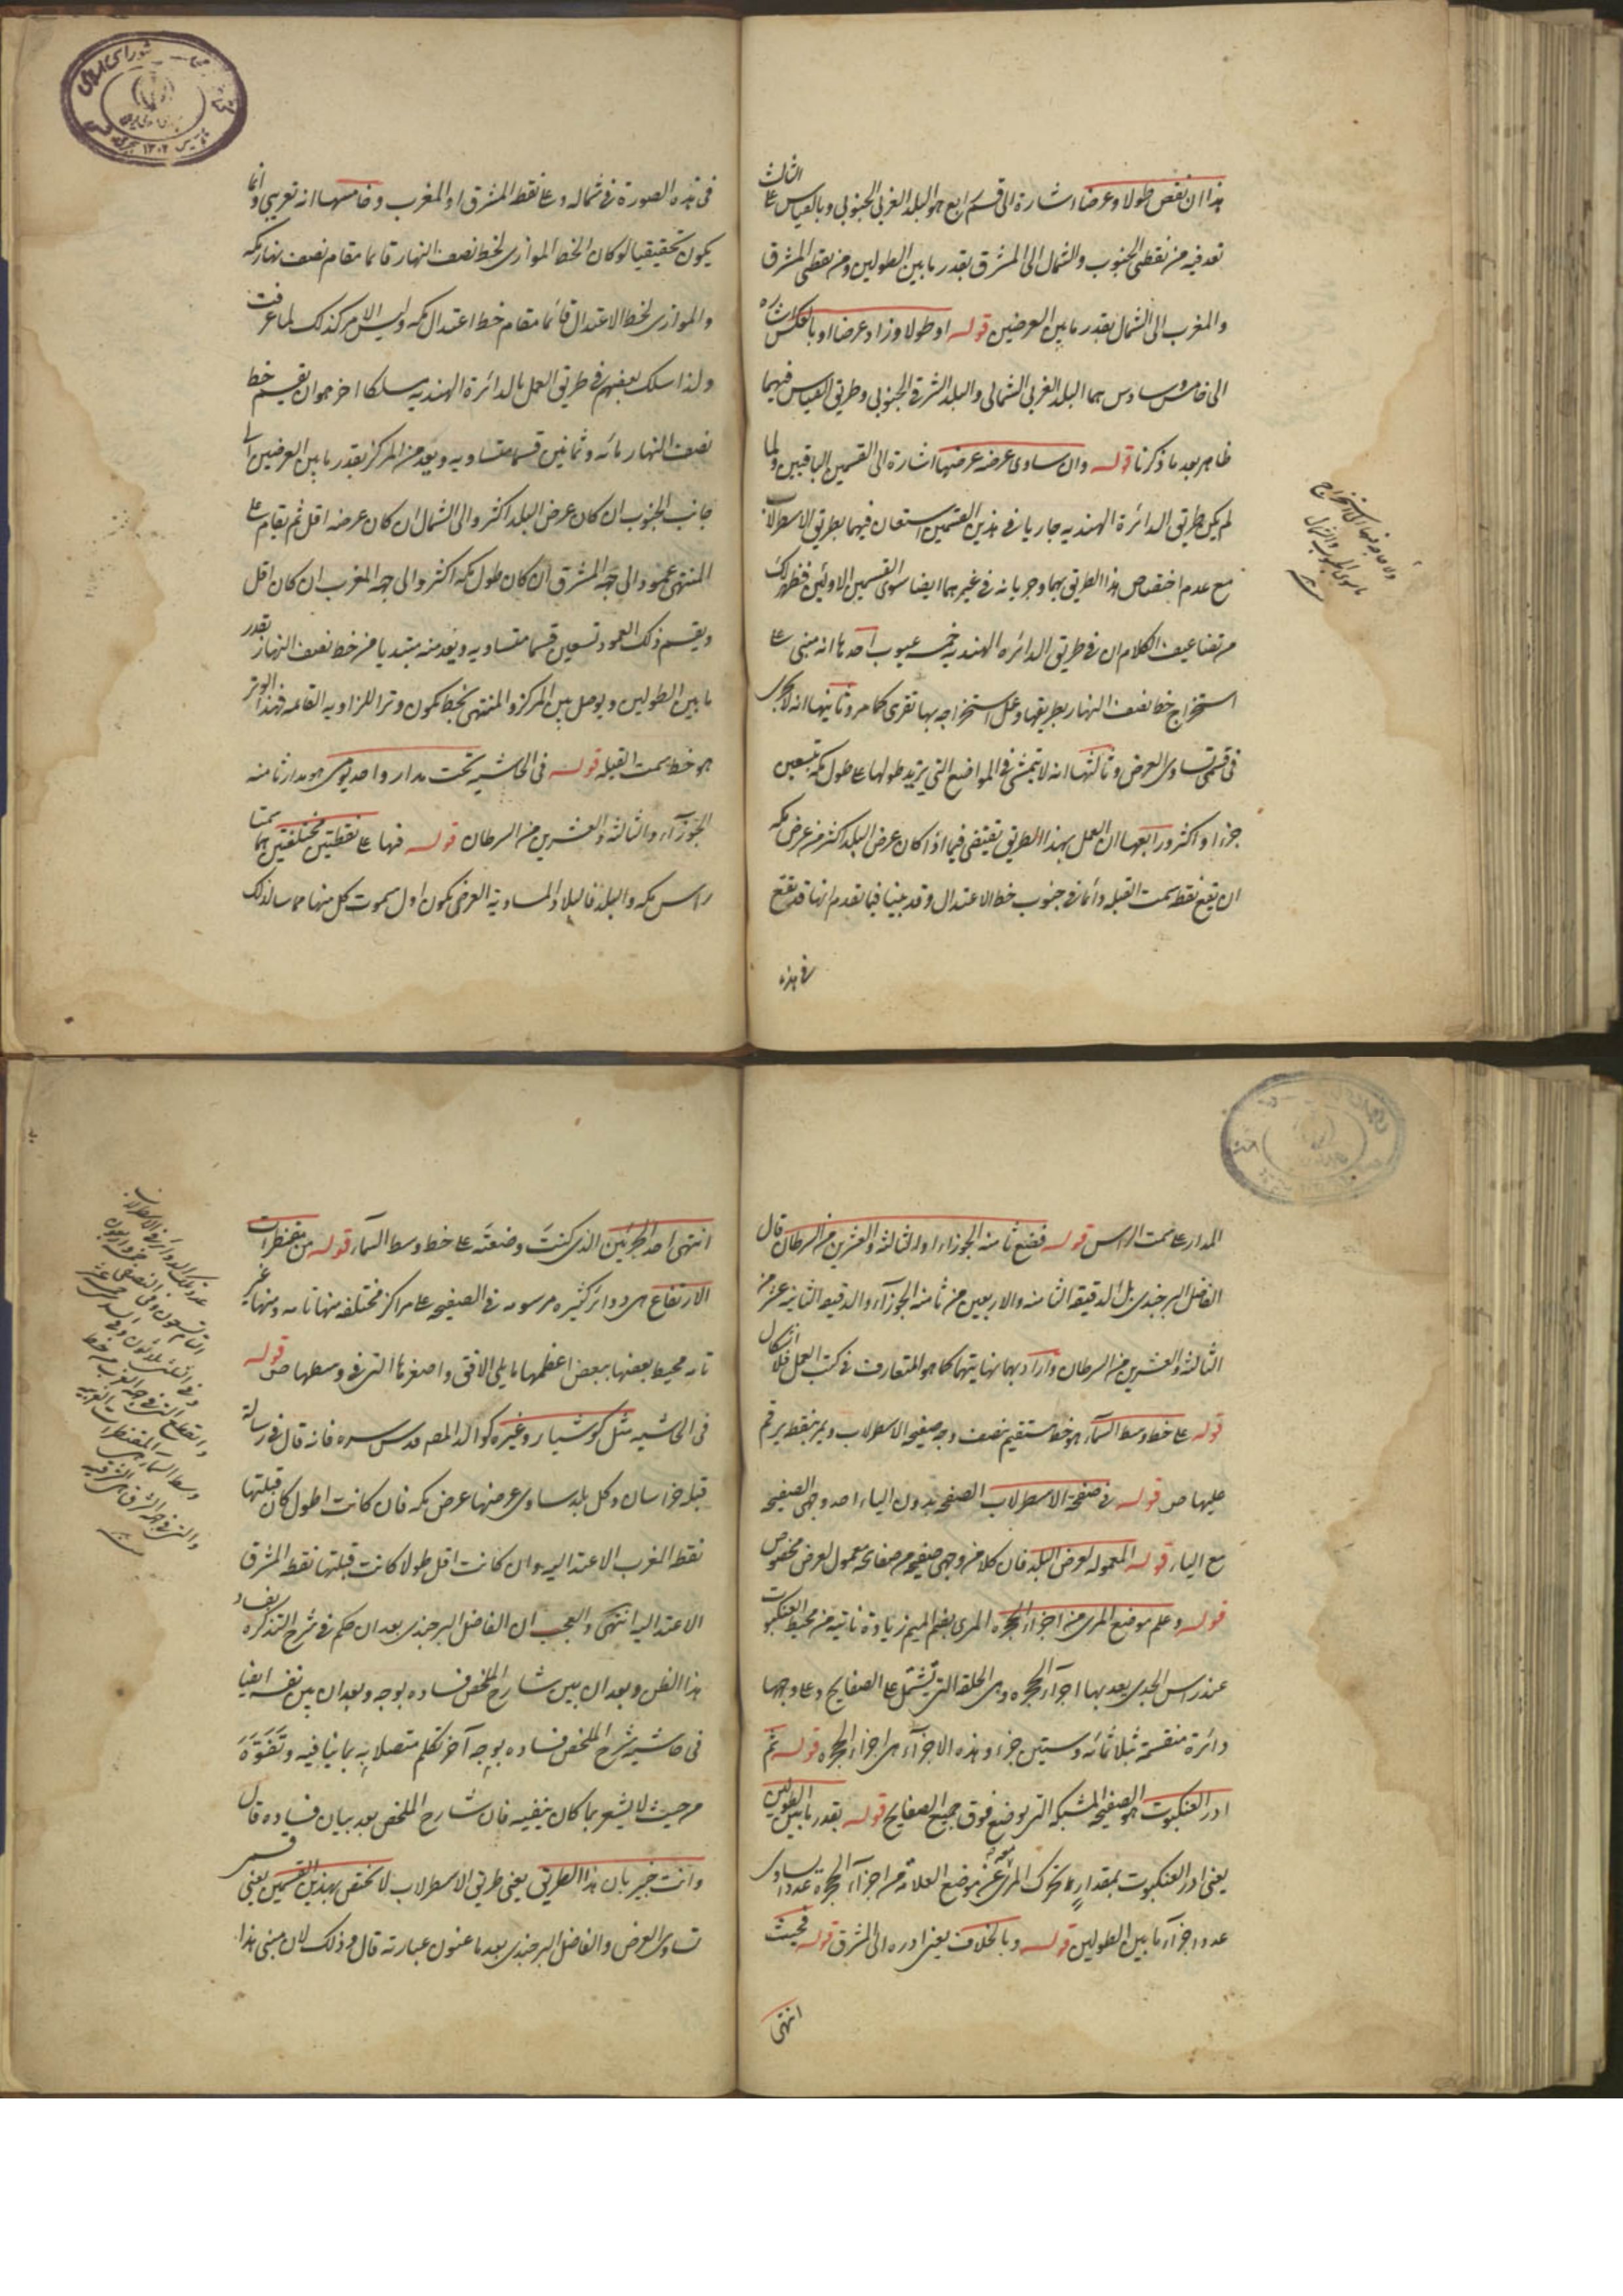 هذا ان نقص طولا وعرضا اشارة الى قسم رابع هو البلد الغربى الجنوبى وبالقياس على الثالث
تعد فيه من نقطتى الجنوب والشمال الى المشرق بقدر ما بين الطولين ومن نقطتى المشرق
والمغرب الى الشمال بقدر ما بين العرضين قوله او طولا وزاد عرضا او بالعكس اشاره
الى خامس وسادس هما البلد الغربى الشمالى والبلد الشرقى الجنوبى وطريق القياس فيهما
ظاهر بعد ما ذكرنا قوله وان ساوى عرضه عرضها اشارة الى القسمين الباقيين ولما
لم يكن طريق الدائرة الهنديه جاريا فى هذين القسمين استعان فيهما بطريق الاسطرلاب
مع عدم اختصاص هذا الطريق بهما وجريانه فى غيرهما ايضا سوى القسمين الاولين فظهر لك
من تضاعيف الكلام ان فى طريق الدائره الهنديه خمسه عيوب احدها انه مبنى على
استخراج خط نصف النهار بطريقها وعمل استخراجه بها تقريبى كما مر وثانيها انه لا يجرى
فى قسمى تساوى العرض وثالثها انه لا يتمشى فى المواضع التى يزيد طولها على طول مكه بتسعين
جزءا او اكثر ورابعها ان العمل بهذا الطريق يقتضى فيما اذا كان عرض البلد اكثر من عرض مكه
ان يقع نقطه سمت القبله دائما فى جنوب خط الاعتدال وقد بينا فيما تقدم انها قد تقع
فى هذه
ما سوى الجنوب والشمال
فى هذه الصورة فى شماله وعلى نقطه المشرق او المغرب وخامسها انه تقريبى وانما
يكون تحقيقيا لو كان الخط الموازى لخط نصف النهار قائما مقام نصف نهار مكه
والموازى لخط الاعتدال قائما مقام خط اعتدال مكه وليس الامر كذلك لما عرفت
ولذا سلك بعضهم فى طريق العمل بالدائرة الهنديه مسلكا اخر هو ان يقسم خط
نصف النهار مائه وثمانين قسما متساويه ويعد من المركز بقدر ما بين العرضين الى
جانب الجنوب ان كان عرض البلد اكثر والى الشمال ان كان عرضه اقل ثم يقام على
المنتهى عمود الى جهه المشرق ان كان طول مكه اكثر والى جهه المغرب ان كان اقل
ويقسم ذلك العمود تسعين قسما متساويه ويعد منه مبتديا من خط نصف النهار بقدر
ما بين الطولين ويوصل بين المركز والمنتهى بخط يكون وترا للزاويه القائمه فهذا الوتر
هو خط سمت القبله قوله فى الحاشيه تحت مدار واحد يومى هو مدار ثامنه
الجوزآء والثالثه والعشرين من السرطان قوله فهما على نقطتين مختلفتين هما سمتا
راس مكه والبلد فالبلاد المساويه العرض يكون اول سموت كل منها مماسا لذلك
المدار على سمت الراس قوله فضع ثامنه الجوزاء او الثالثه والعشرين من السرطان قال
الفاضل البرجندى بل الدقيقه الثامنه والاربعين من ثامنه الجوزآء والدقيقه الثانيه عشر من
الثالثه والعشرين من السرطان واراد بهما نهايتهما كما هو المتعارف فى كتب العمل فلا اشكال
قوله على خط وسط السمآء هو خط مستقيم ينصف وجه صفيحه الاسطرلاب ويمر بنقطه يرقم
عليها ص قوله فى صفحة الاسطرلاب الصفحه بدون الياء احد وجهى الصفيحه
مع الياء قوله المعموله لعرض البلد فان كلا من وجهى صفيحه من صفائحه معمول لعرض مخصوص
قوله وعلم موضع المرى من اجزاء الحجره المرى بضم الميم زيادة ناتيه من محيط العنكبوت
عند راس الجدى يعد بها اجزآء الحجره وهى الحلقه التى تشتمل على الصفايح وعلى وجهها
دائرة منقسمة بثلاثمائه وستين جزء وهذه الاجزآء هى اجزاء الحجره قوله ثم
ادر العنكبوت هو الصفيحه المشبكه التى يوضع فوق جميع الصفايح قوله بقدر ما بين الطولين
يعنى ادر العنكبوت بمقدار ما يتحرك المرى عن موضع العلامه من اجزآء الحجرة عددا يساوى
عدد اجزآء ما بين الطولين قوله وبالخلاف يعنى ادره الى المشرق قوله فحيث
انتهى
انتهى احد الجزئين الذى كنت وضعته على خط وسط السمآء قوله من مقنطرات
الارتفاع هى دوائر كثيره مرسومه فى الصفيحه على مراكز مختلفه منها تامه ومنها غير
تامه محيط بعضها ببعض اعظمها ما يلى الافق واصغرها التى فى وسطها ص قوله
فى الحاشيه مثل كوشيار وغيره كوالد المصـ قدس سره فانه قال فى رسالة
قبله خراسان وكل بلد ساوى عرضها عرض مكه فان كانت اطول كان قبلتها
نقطه المغرب الاعتداليه وان كانت اقل طولا كانت قبلتها نقطه المشرق
الاعتداليه انتهى والعجب ان الفاضل البرجندى بعد ان حكم فى شرح التذكره بفساد
هذا الظن وبعد ان بين شارح الملخص فساده بوجه وبعد ان بين نفسه ايضا
فى حاشيه شرح الملخص فساده بوجه آخر تكلم متصلا به بما ينافيه وتفوّه
من حيث لا يشعر بما كان ينفيه فان شارح الملخص بعد بيان فساده قال
وانت خبير بان هذا الطريق يعنى طريق الاسطرلاب لا يختص بهذين القسمين يعنى قسمى
تساوى العرض والفاضل البرجندى بعد ما عنون عبارته قال وذلك لان مبنى هذا